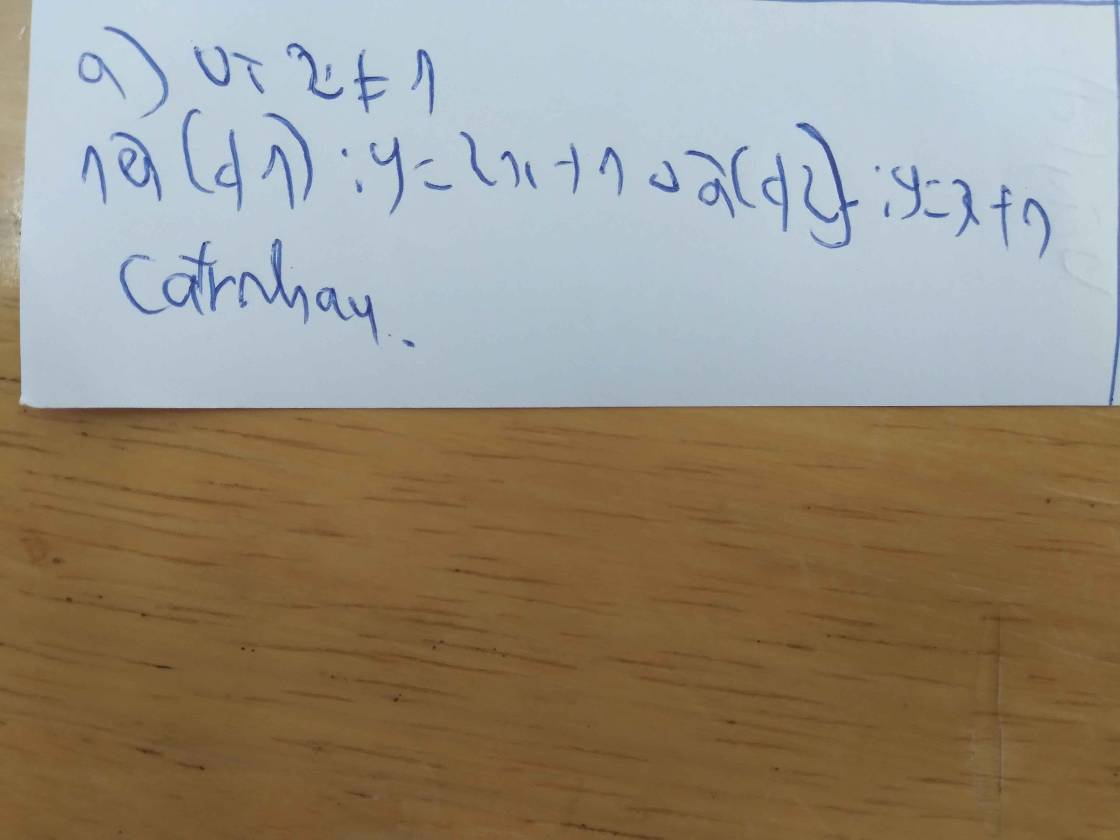 a) Vì 2 ≠ 1
nên (d1) : y = 2x + 1 và (d2) : y = x + 1
cắt nhau.